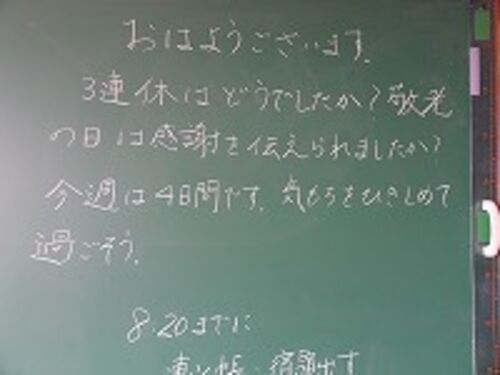 おはようございます。
3連休はどうでしたか?敬老
の日は感謝を伝えられましたか?
今週は4日間です。気もちをひきしめて
過ごそう。
8:20までに